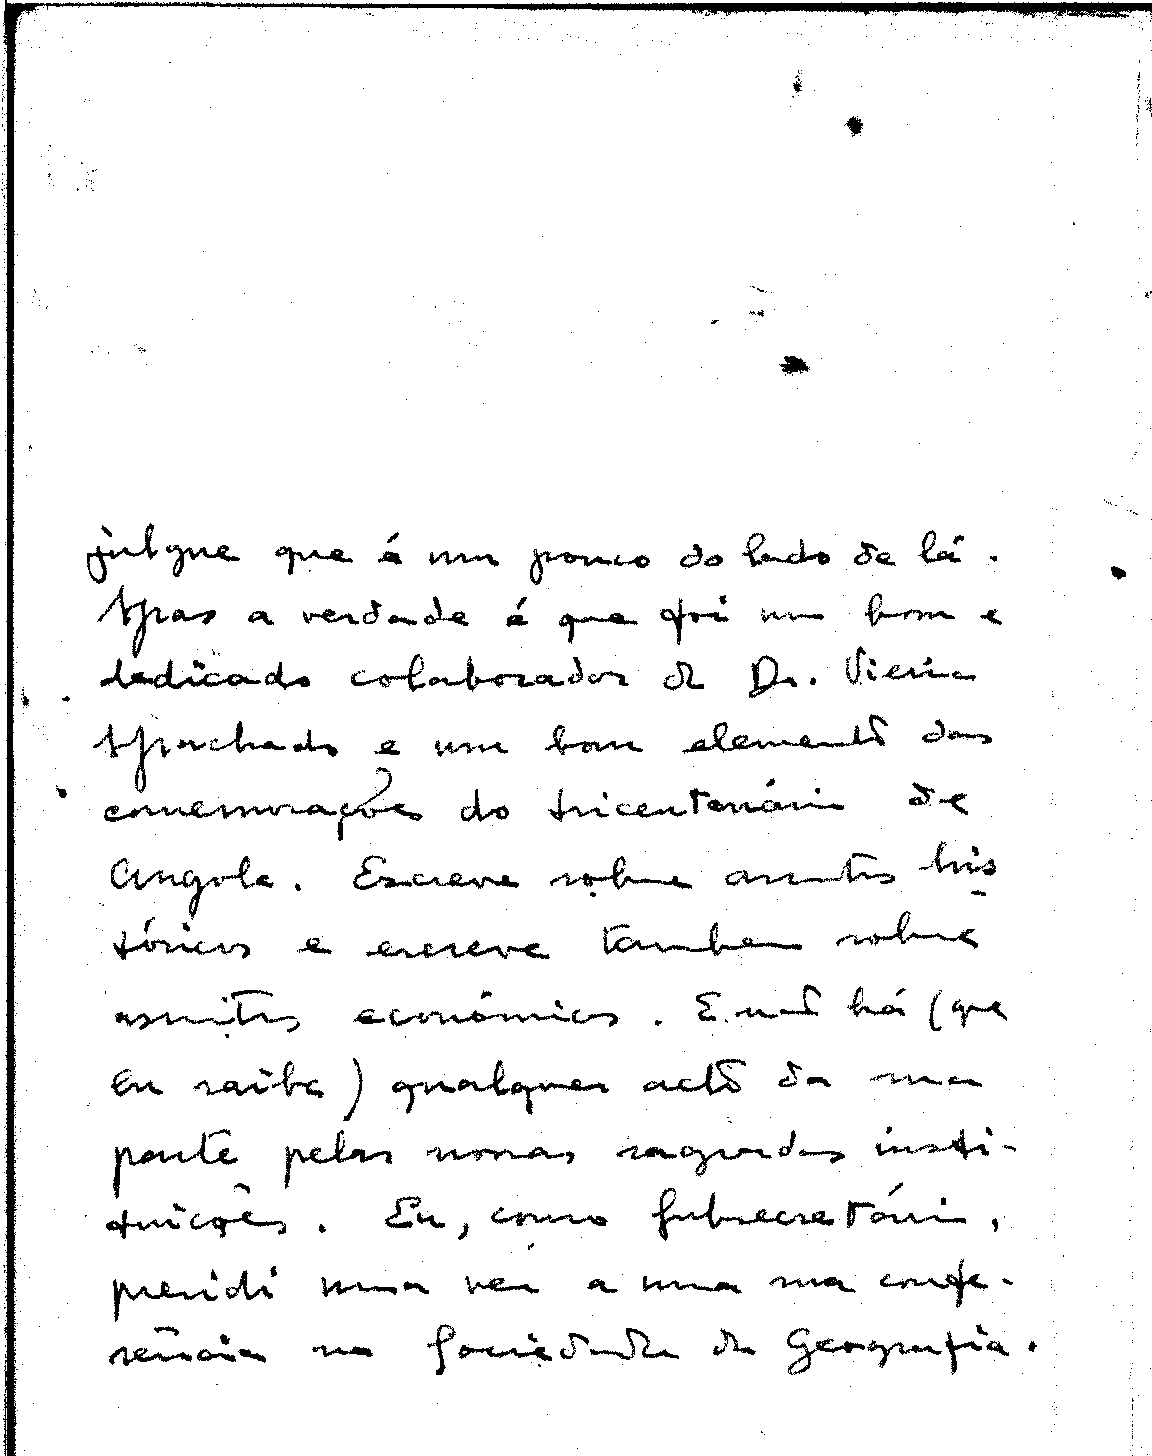 julgue que é um pouco do lado de lá.
Mas a verdade é que foi um bom e
dedicado colaborador do Dr. Vieira
Machado e um bom elemento das
comemorações do tricentenário de
Angola. Escreve sobre assuntos his
tóricos e escreve tambem sobre
assuntos económicos. E não há (que
eu saiba) qualquer acto da sua
parte pelas nossas sagradas insti-
tuições. Eu, como Subsecretário,
presidi uma vez a uma sua confe-
rência na Sociedade de Geografia.